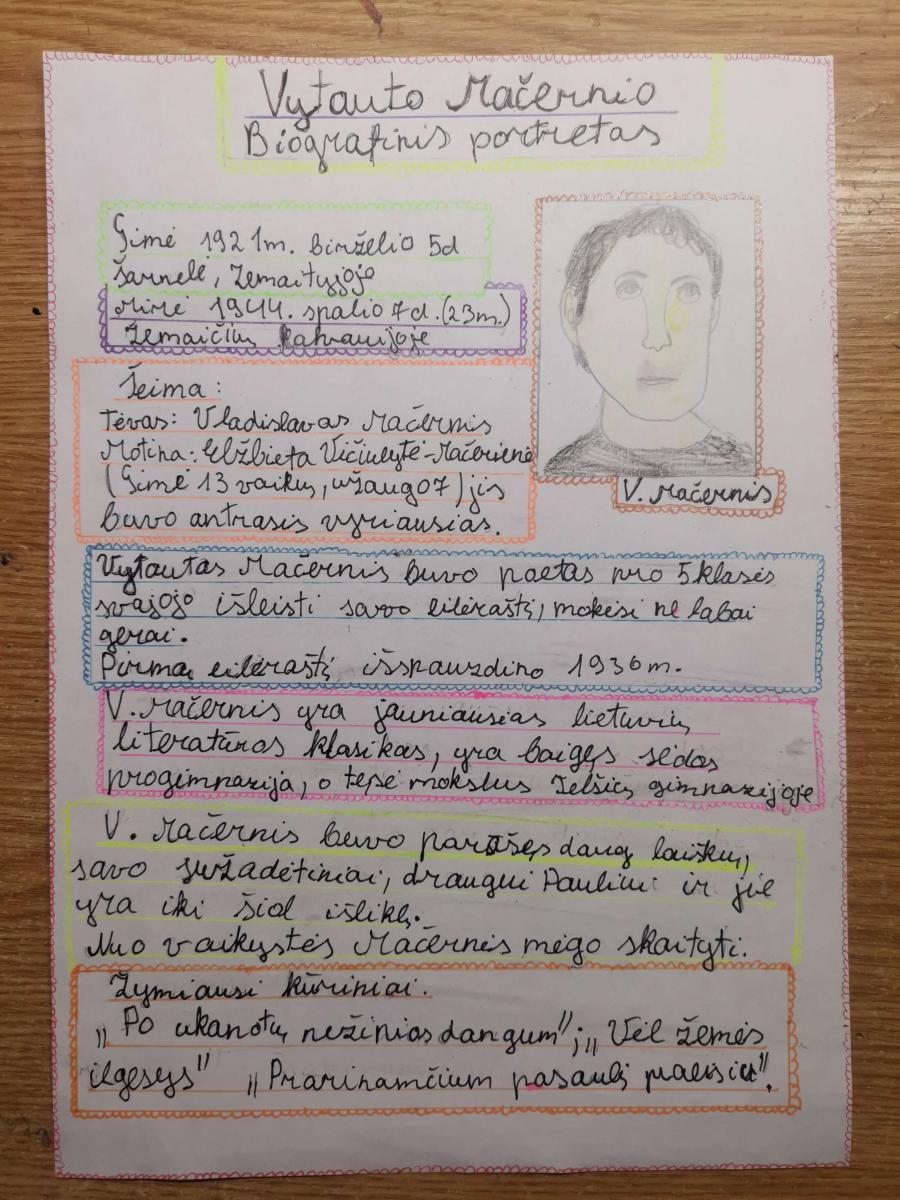 Vytauto Mačernio
Biografinis portretas
Gimė 1921m. Birželio 5d.
Šarnelė, Žemaitijoje
Mirė 1944. spalio 7d. (23m.)
Žemaičių Kalvarijoje
Šeima:
Tėvas: Vladislavas Mačernis
Motina: Elžbieta Vičiulytė-Mačernienė
(Gimė 13 vaikų, užaugo 7) jis
buvo antrasis vyriausias.
V. Mačernis
Vytautas Mačernis buvo poetas nuo 5 klasės
svajojo išleisti savo eilėraštį, mokėsi ne labai
gerai.
Pirmą eilėraštį išspauzdino 1936m.
V. Mačernis yra jauniausias lietuvių
literatūros klasikas, yra baigęs sėdos
progimnaziją, o tęsė mokslus Telšių gimnazijoje
V. Mačernis buvo parašęs daug laiškų,
savo sužadėtiniai, draugui Pauliui ir jie
yra iki šiol išlikę.
Nuo vaikystės Mačernis mėgo skaityti.
Žymiausi kūriniai.
„Po ūkanotu nežinios dangum"; „Vėl žemės
ilgesys" „Praeinančium pasaulį